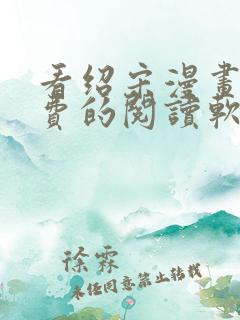 看绍宋漫畫
費的閱讀軟
徐霖
未经同意禁止转载